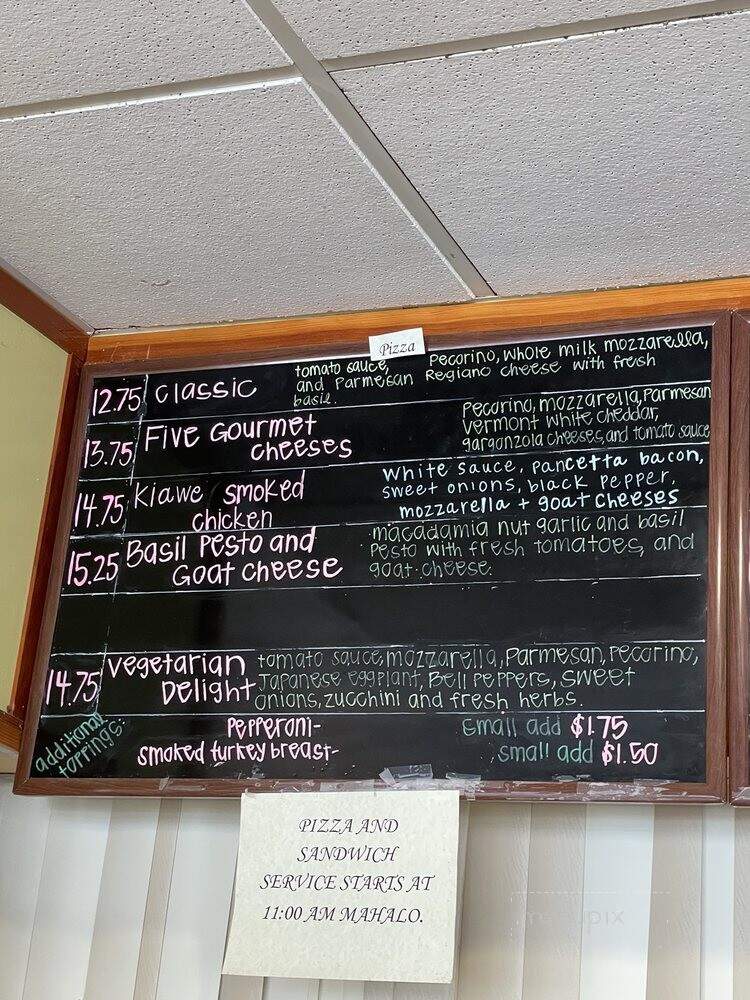 Pizza
12.75 Classic
tomato sauce, Pecorino, whole milk mozzarella,
and Parmesan Regiano cheese with fresh
basil.
13.75 Five Gourmet
cheeses
Pecorino, mozzarella, Parmesan
Vermont white cheddar,
gargonzola cheeses, and tomato sauce
14.75 Kiawe smoked
chicken
White sauce, pancetta bacon,
sweet onions, black pepper,
mozzarella + goat cheeses
15.25 Basil Pesto and
Goat cheese
macadamia nut garlic and basil
Pesto with fresh tomatoes, and
goat cheese.
14.75 Vegetarian
Delight
tomato sauce, mozzarella, Parmesan, Pecorino,
Japanese eggplant, Bell Peppers, sweet
onions, zucchini and fresh herbs.
additional
toppings:
Pepperoni- small add $1.75
smoked turkey breast- small add $1.50
PIZZA AND
SANDWICH
SERVICE STARTS AT
11:00 AM MAHALO.